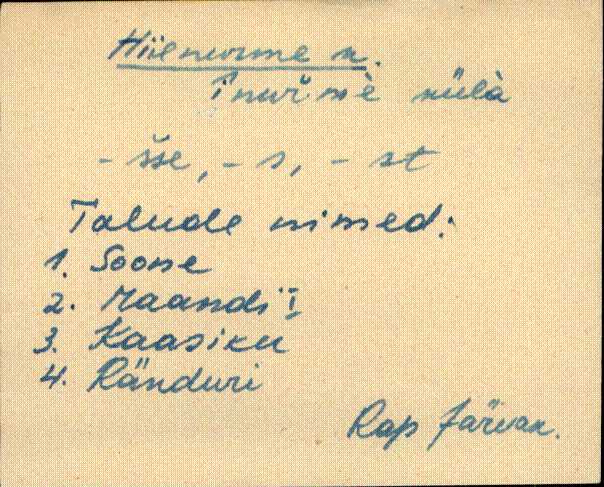 Hiienurme k.
ĭnuŕmè külà
- šse, - s, - st
Talude nimed:
1. Soone
2. Maandi I
3. Kaasiku
4. Ränduri
Rap Järvak.